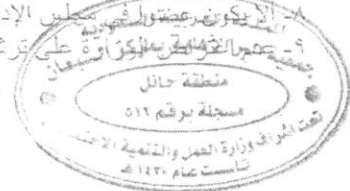 ٨- ألا يكون عضو في مجلس الإد
٩- عدم اعتراض الوزارة على تر
جمعية
منطقة حائل
مسجلة برقم ٥١٢
تحت إشراف وزارة العمل والتنمية
تأسست عام ١٤٣٠ هـ